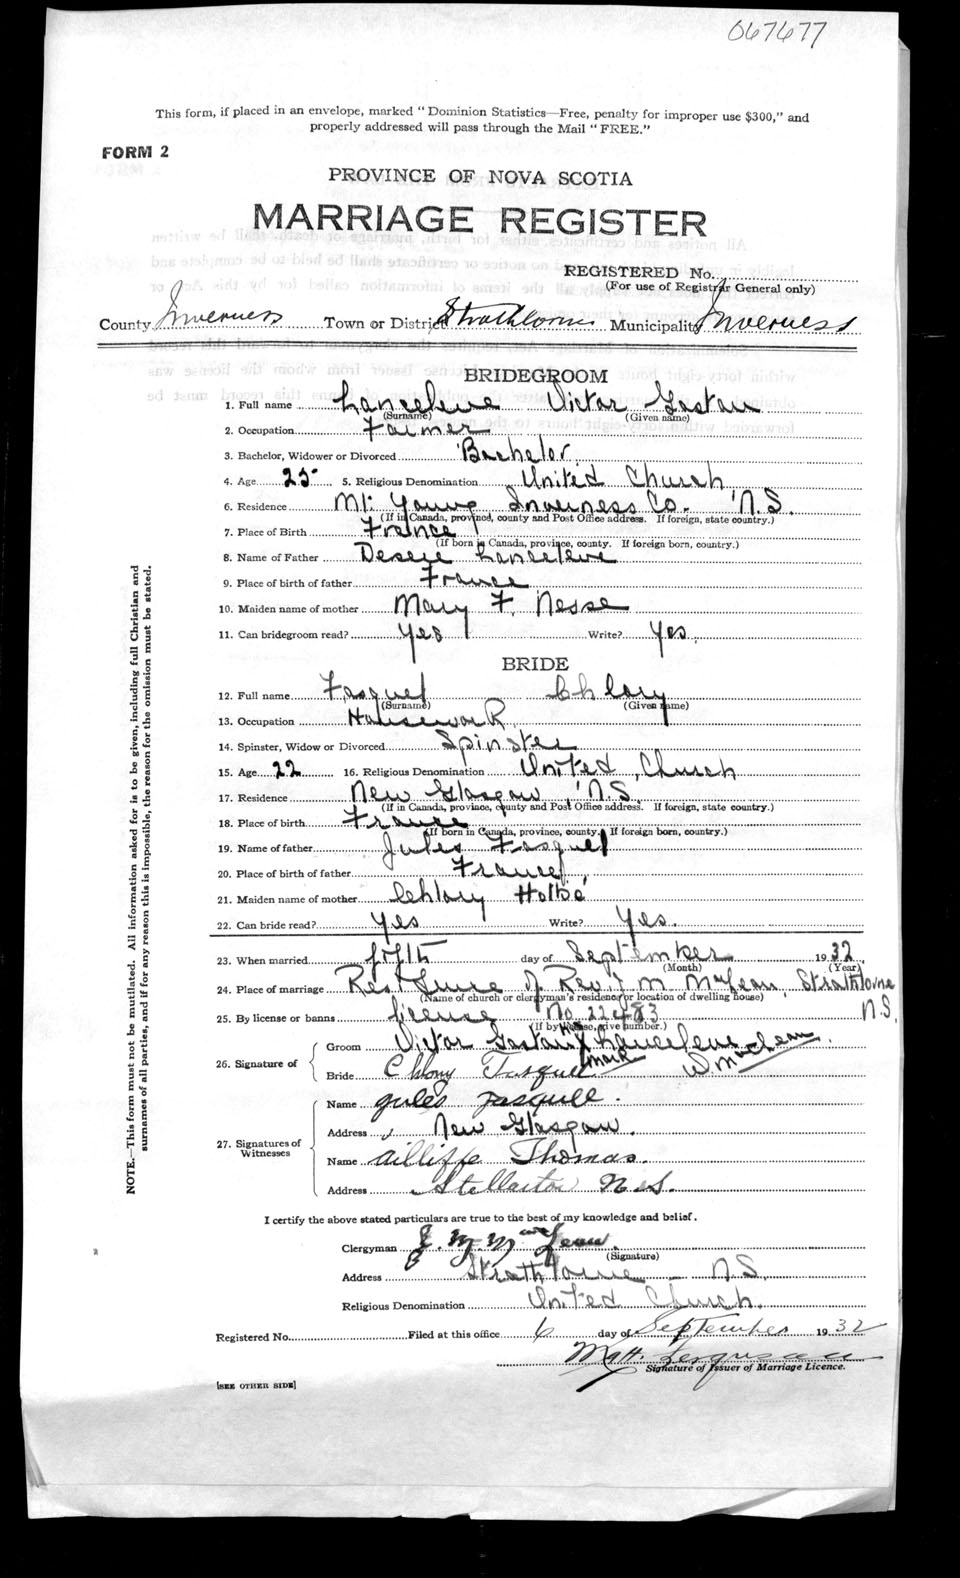 067677
This form, if placed in an envelope, marked "Dominion Statistics—Free, penalty for improper use $300," and
properly addressed will pass through the Mail "FREE."
FORM 2
PROVINCE OF NOVA SCOTIA
MARRIAGE REGISTER
REGISTERED No.
(For use of Registrar General only)
County Inverness Town or District Strathlorne Municipality Inverness
BRIDEGROOM
1. Full name Lanceleve Victor Gaston
(Surname) (Given name)
2. Occupation Farmer
3. Bachelor, Widower or Divorced Bachelor
4. Age 25 5. Religious Denomination United Church
6. Residence Mt. Young Inverness Co. N.S.
(If in Canada, province, county and Post Office address. If foreign, state country.)
7. Place of Birth France
(If born in Canada, province, county. If foreign born, country.)
8. Name of Father Desere Lanceleve
9. Place of birth of father France
10. Maiden name of mother Mary F. Nesse
11. Can bridegroom read? Yes Write? Yes.
BRIDE
12. Full name Fasquel Chlory
(Surname) (Given name)
13. Occupation Housework
14. Spinster, Widow or Divorced Spinster
15. Age 22 16. Religious Denomination United Church
17. Residence New Glasgow N.S.
(If in Canada, province, county and Post Office address. If foreign, state country.)
18. Place of birth France
(If born in Canada, province, county. If foreign born, country.)
19. Name of father Jules Fasquel
20. Place of birth of father France
21. Maiden name of mother Chlory Holbé
22. Can bride read? Yes Write? Yes.
23. When married fifth day of September 1932
(Month) (Year)
24. Place of marriage Residence of Rev. J M McLean, Strathlorne
(Name of church or clergyman's residence or location of dwelling house)
N.S.
25. By license or banns license No 22483
(If by license, give number.)
26. Signature of
Groom Victor Gaston His Lanceleve
mark
Bride Chlory Fasquel
27. Signatures of Witnesses
Name Jules Fasquel.
Address New Glasgow.
Name Ailliffe Thomas.
Address Stellarton N.S.
I certify the above stated particulars are true to the best of my knowledge and belief.
Clergyman J. M. McLean.
(Signature)
Address Strathlorne - N.S.
Religious Denomination United Church.
Registered No. Filed at this office 6 day of September 1932
Matt. Ferguson
Signature of Issuer of Marriage Licence.
[SEE OTHER SIDE]
NOTE.—This form must not be mutilated. All information asked for is to be given, including full Christian and
surnames of all parties, and if for any reason this is impossible, the reason for the omission must be stated.